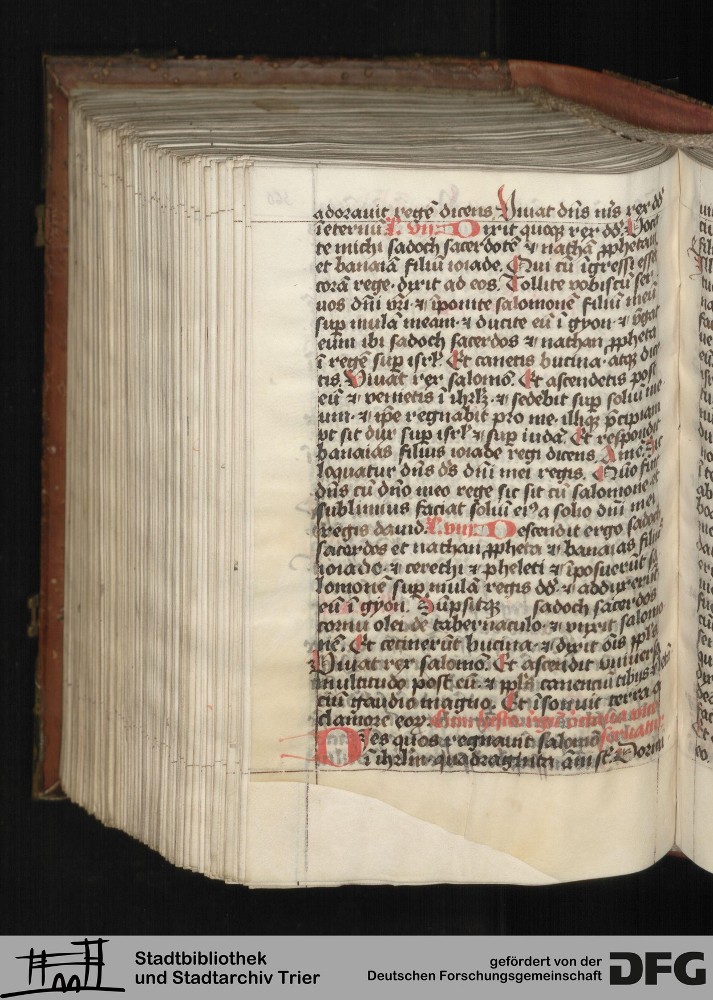 adorauit regē dicens Viuat dn̄s nr̄s rex dd̄
ī eternū L. vij. Dixit quoq rex dd̄ Voca
te michi sadoch sacerdotē ⁊ nathā ꝓphetam
et banaiā filiū ioiade. Qui cū īgressi essēt
corā rege dixit ad eos. Tollite vobiscū ser
uos dn̄i vr̄i ⁊ īponite salomonē filiū meū
sup mulā meam ⁊ ducite eū ī gyon ⁊ vngat
eum ibi sadoch sacerdos ⁊ nathan ꝓpheta
ī regē sup isrl̄. Et canetis bucina atq dice
tis. Viuat rex salomō. Et ascendetis post
eū ⁊ venietis ī ihrlꝫ ⁊ sedebit sup soliū me
um ⁊ ip̄e regnabit pro me illiq p̄cipiam
vt sit dux sup isrl̄ ⁊ sup iudā. Et respondit
banaias filius ioiade regi dicens Amē. Sic
loquatur dn̄s ds̄ dn̄i mei regis. Quō fuit
dn̄s cū dn̄o meo rege sic sit cū salomone et
sublimius faciat soliū eiꝰ a solio dn̄i mei
regis dauid. L. viij. Descendit ergo sadoch
sacerdos et nathan ꝓpheta ⁊ banaias filiꝰ
ioiade ⁊ cerethi ⁊ pheleti ⁊ īposuerūt sa
lomonē sup mulā regis dd̄ ⁊ adduxerūt
eū ī gyon. Sūpsitq sadoch sacerdos
cornu olei de tabernaculo ⁊ vnxit salomo
nē. Et cecinerūt bucina ⁊ dixit ōis ppl̄s
Viuat rex salomō. Et ascendit vniuersa
multitudo post eū ⁊ ppl̄s canenciū tibijs ⁊ letā
ciū gaudio magno. Et īsonuit terra a
clamore eoꝝ.
Dies quos regnauit salomō
ī ihrlm̄ quadraginta ānī st̄. Dormi
Stadtbibliothek
und Stadtarchiv Trier
gefördert von der
Deutschen Forschungsgemeinschaft
DFG